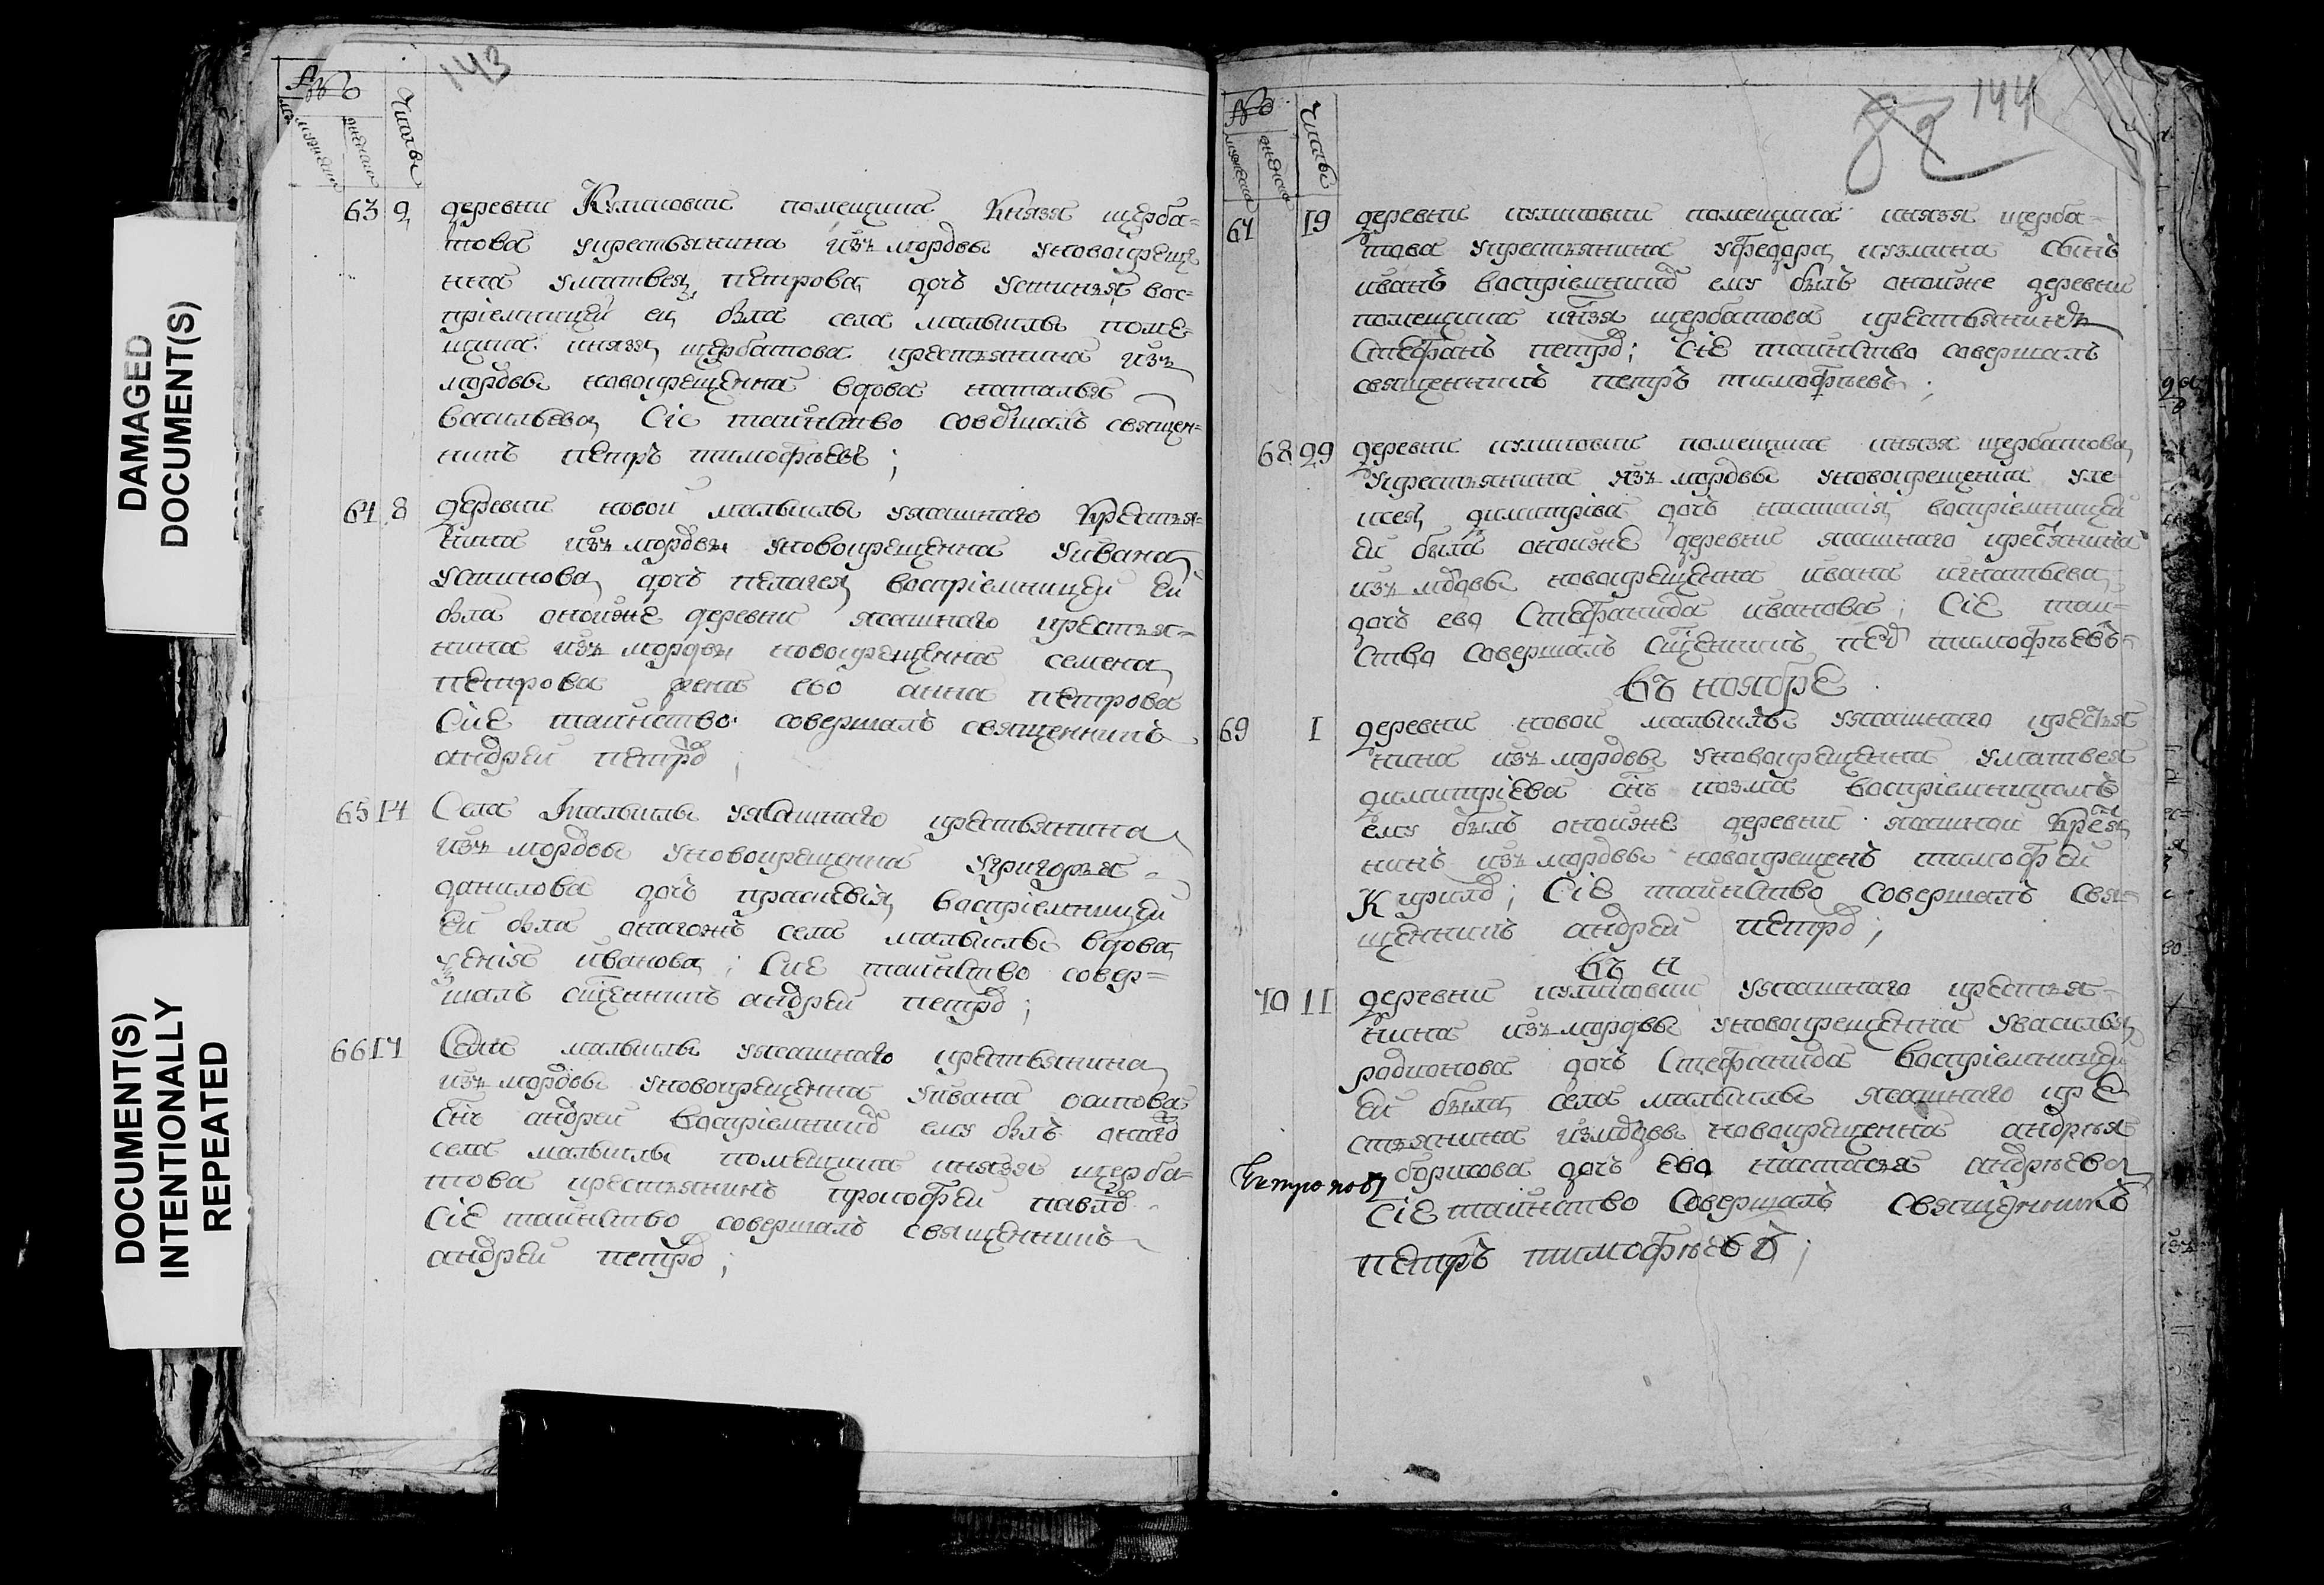 DAMAGED
DOCUMENT(S)
DOCUMENT(S)
INTENTIONALLY
REPEATED
143
№
мужеска
женска
Числы
63 2 деревни Куликовки помещика Князя щерба-
това укрестьянина изъ мордвы уновокреще
нна уматвея петрова дочь устинья вос-
пріемницей ей была села малыклы поме-
щика князя щербатова крестьянина изъ
мордвы новокрещенна вдова наталья
васильева Сіе таинство совершалъ священ-
никъ петръ тимофѣевъ ;
64 8 деревни новой малыклы уясашнаго крестья-
нина изъ мордвы уновокрещенна уивана
устинова дочь пелагея воспріемницей ей
была оной же деревни ясашнаго крестья-
нина изъ мордвы новокрещенна семена
петрова жена ево анна петрова
Сие таинство совершалъ священникъ
андрей петро ;
65 14 Села малыклы уясашнаго крестьянина
изъ мордвы уновокрещенна угригорья
данилова дочь прасковія воспріемницей
ей была онагожъ села малыклы вдова
ксенія иванова ; Сие таинство совер-
шалъ сщенникъ андрей петро ;
66 17 Села малыклы уясашнаго крестьянина
изъ мордвы уновокрещенна уивана
снъ андрей воспріемнико ему былъ онаго
села малыклы помещика князя щерба-
това крестьянинъ прокофей павло
Сіе таинство совершалъ священникъ
андрей петро ;
144
№
мужеска
женска
Числы
67 19 деревни куликовки помещика князя щерба-
това укрестьянина уфедора кузмина сынъ
иванъ воспріемнико ему былъ оной же деревни
помещика князя щербатова крестьянинъ
Стефанъ петро ; Сие таинство совершалъ
священникъ петръ тимофѣевъ ;
68 22 деревни куликовки помещика князя щербатова
укрестьянина изъ мордвы уновокрещенна уле
ксея димитріва дочь настасія воспріемницей
ей была оной же деревни ясашнаго крестянина
изъ мдовы новокрещенна ивана игнатьева
дочь ево Стефанида иванова ; Сіе таи-
ство совершалъ сщенникъ пе тимофѣевъ
въ ноябре
69 1 деревни новой малыклы уясашнаго крестья
нина изъ мордвы уновокрещенна уматвея
димитріева снъ козма воспріемникомъ
ему былъ оной же деревни ясашной крестья
нинъ изъ мордвы новокрещенъ тимофей
Кирило ; Сіе таинство совершалъ свя-
щенникъ андрей петро ;
въ н
70 11 деревни куликовки уясашнаго крестья-
нина изъ мордвы уновокрещенна увасилья
родионова дочь Стефанида воспріемницей
ей была села малыклы ясашнаго кре
стьянина измдовы новокрещенна андрѣя
борисова дочь ево настасья андрѣева
Сіе таинство совершалъ священникъ
петръ тимофѣевъ ;